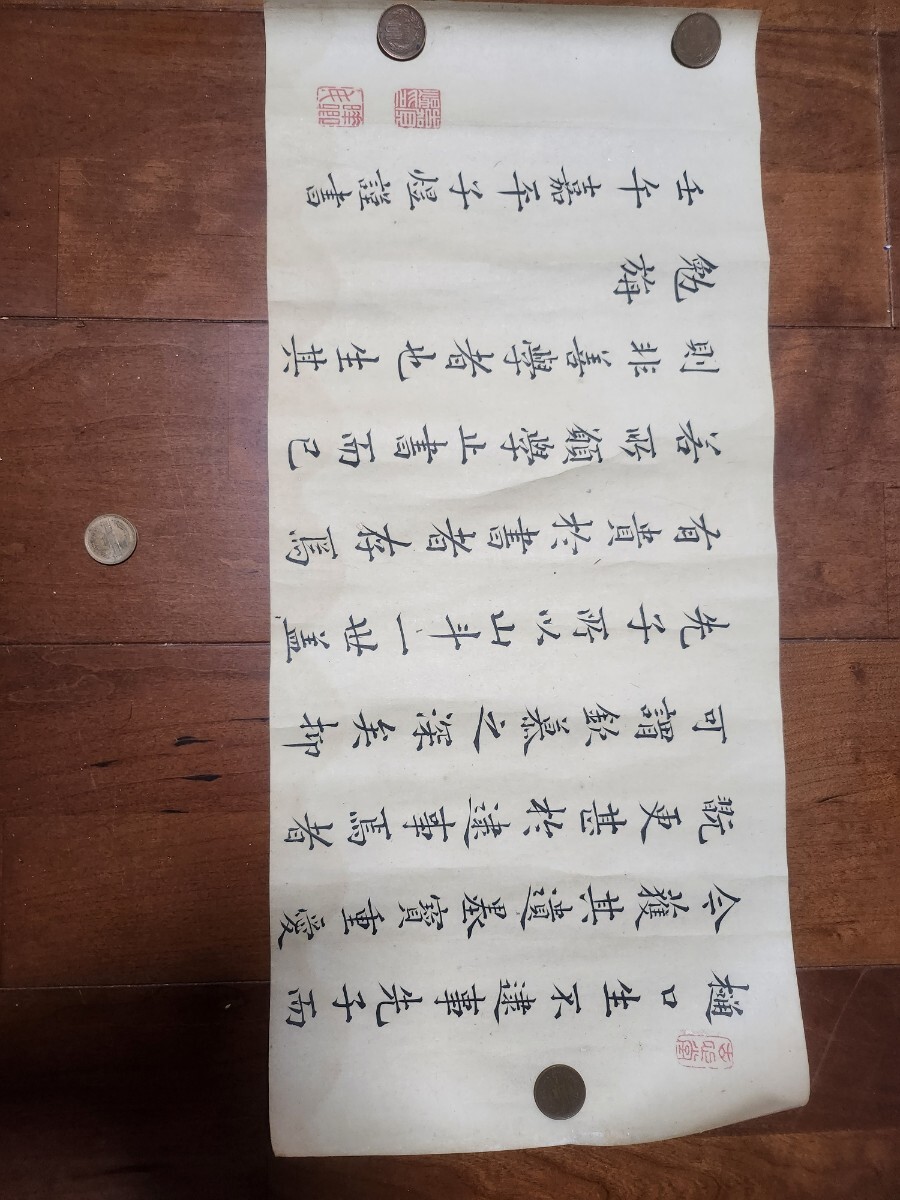 樋口生不逮事先子而
今獲其遺墨寶重愛
翫更甚於逮事焉者
可謂欽慕之深矣抑
先子所以山斗一世盖
有貴於書者存焉
若所願學止書而已
則非善學者也生其
勉旃
壬午嘉平子煜謹書